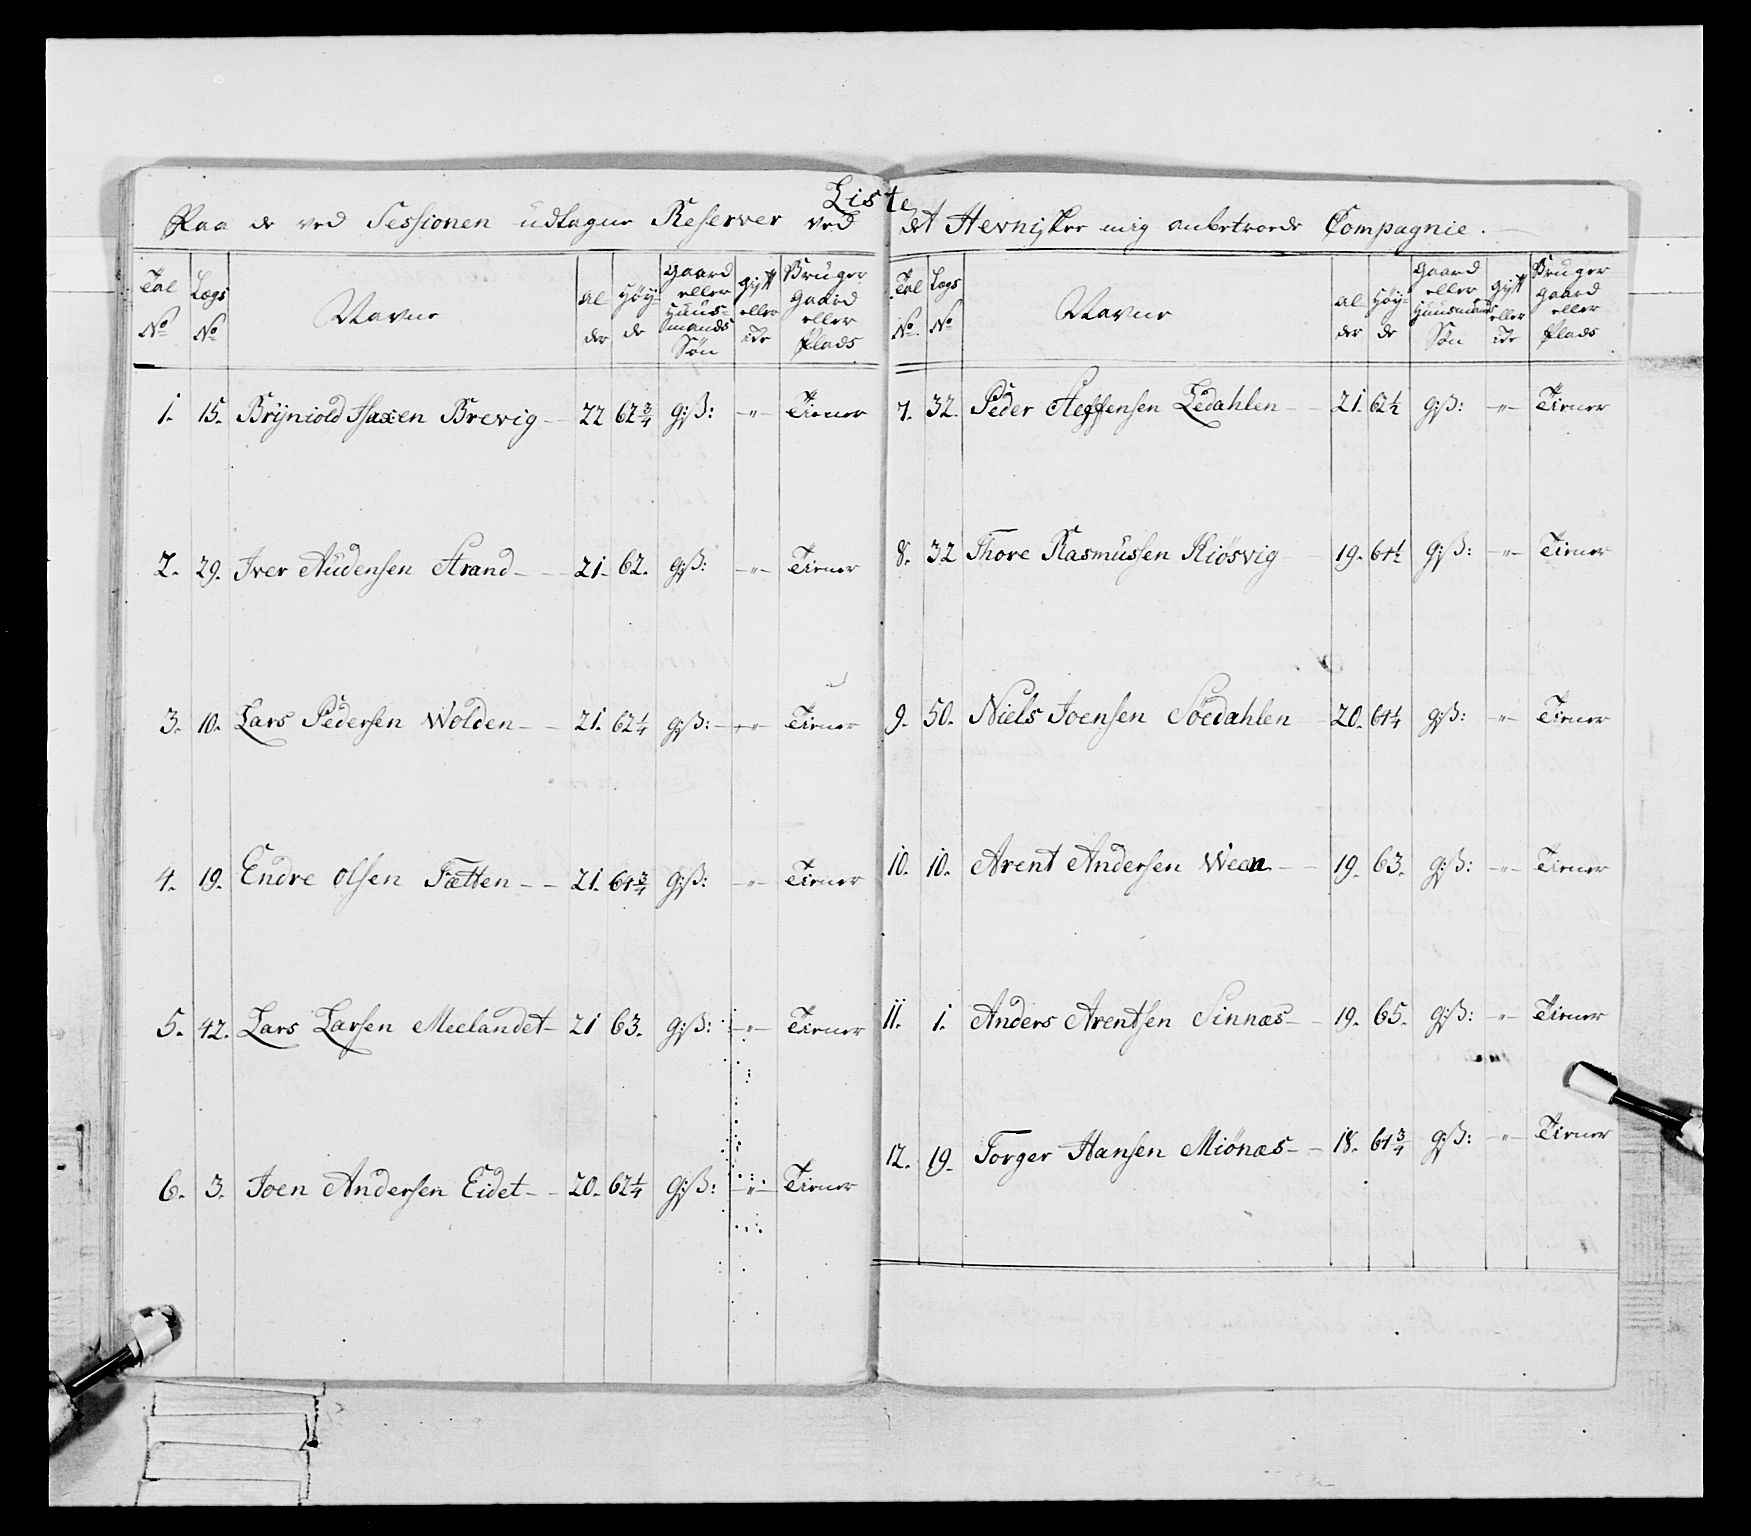 Liste
Paa de ved Sessionen udtagne Reserver ved det Hevnijske mig anbetroede Compagnie.
Tal No | Lægs No | Navne | Al- der | Høy- de | Gaard eller Huus- mands Søn | Gift eller Ey | Bruger Gaard eller Plads
1. 15. Brÿniold Isaxen Brevig 22 62 3/4 gß: -"- Tiener
2. 29. Iver Audensen Strand 21. 62. gß: -"- Tiener
3. 10. Lars Pedersen Wolden 21. 62 1/4 gß: -"- Tiener
4. 19. Endre Olsen Tætten 21. 61 3/4 gß: -"- Tiener
5. 42. Lars Larsen Meelandet 21 63. gß: -"- Tiener
6. 3. Joen Andersen Eidet 20. 62 1/4 gß: -"- Tiener
Tal No | Lægs No | Navne | Al der | Høy- de | Gaard eller Huusmands Søn | Gift eller | Bruger Gaard eller Plads
7. 32. Peder Steffensen Ledahlen 21. 62 1/2 gß: -"- Tiener
8. 32 Thore Rasmussen Kiösvig 19. 61 1/2 gß: -"- Tiener
9. 50. Niels Joensen Söedahlen 20. 61 1/4 gß: -"- Tiener
10. 10. Arent Andersen 19. 63. gß: -"- Tiener
11. 1. Anders Arentsen Sinnæs 19. 65. gß: -"- Tiener
12. 19. Torger Hansen Miönæs 18. 61 3/4 gß: -"- Tiener